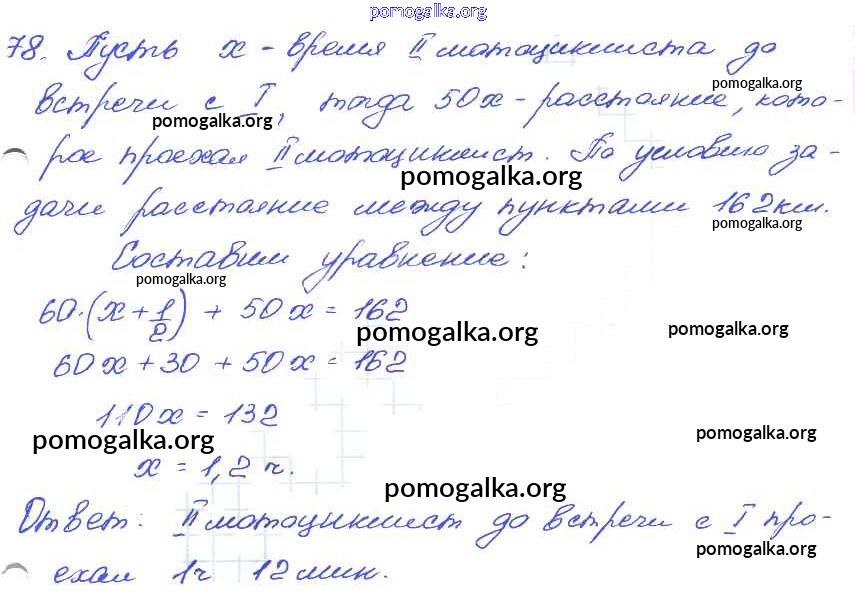 pomogalka.org
78. Пусть x - время II мотоциклиста до
pomogalka.org
встречи с I, тогда 50x - расстояние, кото-
pomogalka.org
рое проехал II мотоциклист. По условию за-
pomogalka.org
дачи расстояние между пунктами 162км.
pomogalka.org
Составим уравнение:
pomogalka.org
60·(x+1/2) + 50x = 162
pomogalka.org pomogalka.org
60x+30 + 50x = 162
110x = 132
pomogalka.org pomogalka.org
x = 1,2 ч.
pomogalka.org
Ответ: II мотоциклист до встречи с I про-
pomogalka.org
ехал 1ч 12мин.